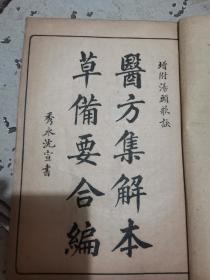 增附湯頭歌訣
醫方集解本
草備要合編
秀水沈宣書